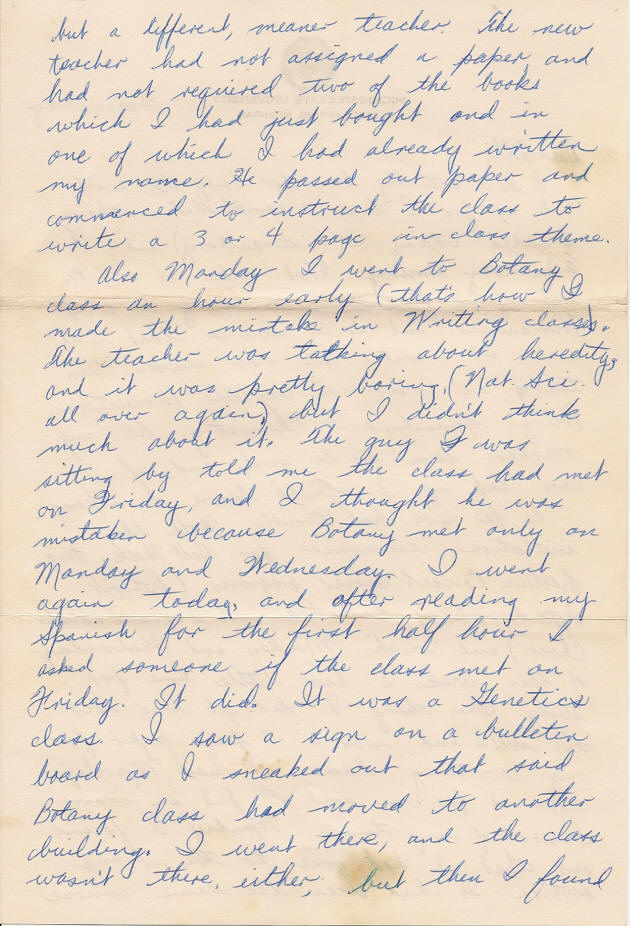 but a different, meaner teacher. The new
teacher had not assigned a paper, and
had not required two of the books
which I had just bought and in
one of which I had already written
my name. He passed out paper and
commenced to instruct the class to
write a 3 or 4 page in class theme.
Also Monday I went to Botany
class an hour early (that's how I
made the mistake in Writing classes).
The teacher was talking about heredity,
and it was pretty boring, (Nat. Sci.
all over again) but I didn't think
much about it. The guy I was
sitting by told me the class had met
on Friday, and I thought he was
mistaken because Botany met only on
Monday and Wednesday. I went
again today, and after reading my
Spanish for the first half hour I
asked someone if the class met on
Friday. It did. It was a Genetics
class. I saw a sign on a bulletin
board as I sneaked out that said
Botany class had moved to another
building. I went there, and the class
wasn't there, either, but then I found